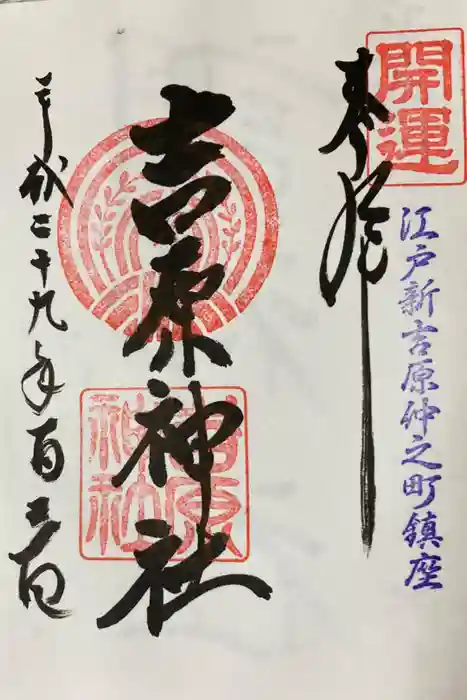 開運
奉拝
江戸新吉原仲之町鎮座
吉原神社
吉原神社
平成二十九年